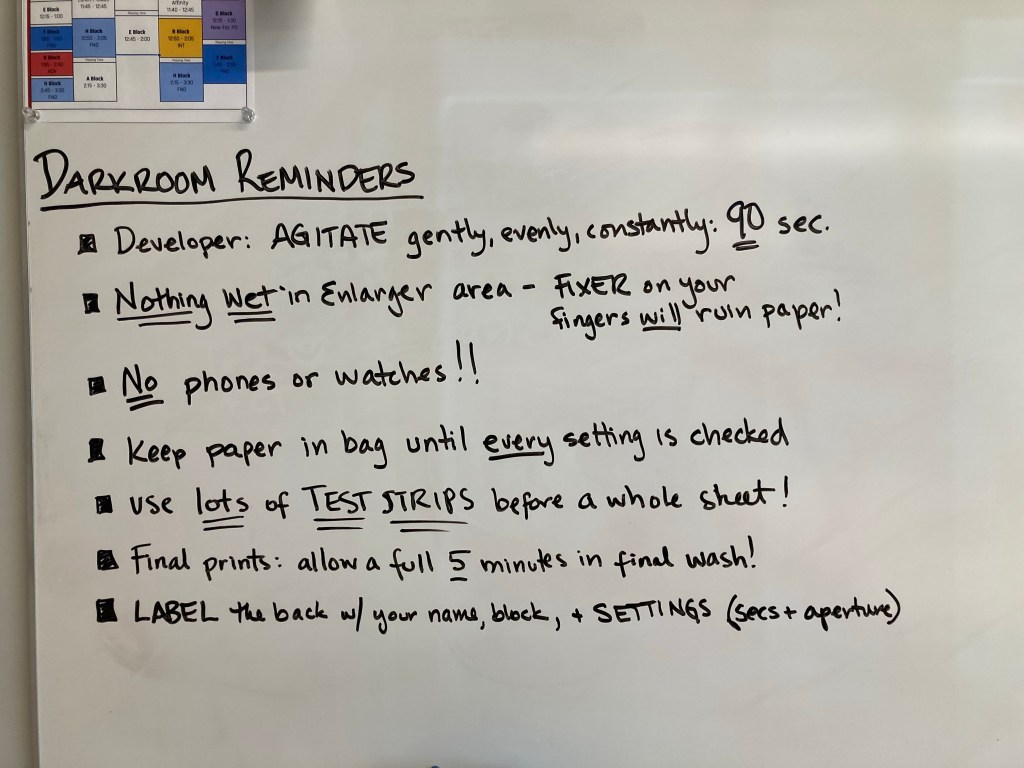 E Block
12:15 - 1:00
11:45 - 12:45
Affinity
11:40 - 12:45
H Block
12:50 - 2:05
FND
E Block
12:45 - 2:00
B Block
12:50 - 2:05
INT
A Block
2:15 - 3:30
H Block
2:15 - 3:30
FND
H Block
2:45 - 3:30
FND
DARKROOM REMINDERS
Developer: AGITATE gently, evenly, constantly: 90 sec.
Nothing Wet in Enlarger area - FIXER on your
fingers will ruin paper!
No phones or watches!!
Keep paper in bag until every setting is checked
use lots of TEST STRIPS before a whole sheet!
Final prints: allow a full 5 minutes in final wash!
LABEL the back w/ your name, block, + SETTINGS (secs + aperture)